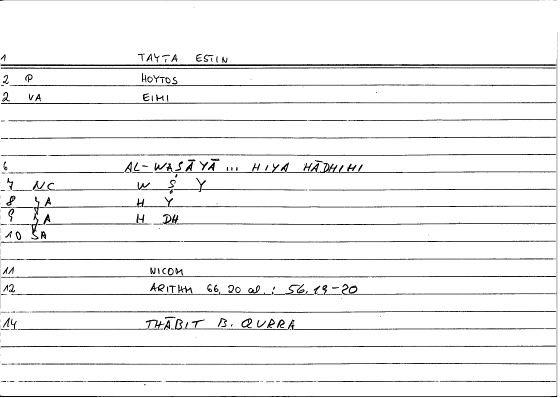 1 TAYTA ESTIN
2 P HOYTOS
2 VA EIMI
6 AL-WAṢĀYĀ ... HIYA HĀDHIHI
7 NC W Ṣ Y
8 ȜA H Y
9 ȜA H DH
10 ȜA
11 NICOM
12 ARITHM 66, 20 al. : 56, 19-20
14 THĀBIT B. QURRA